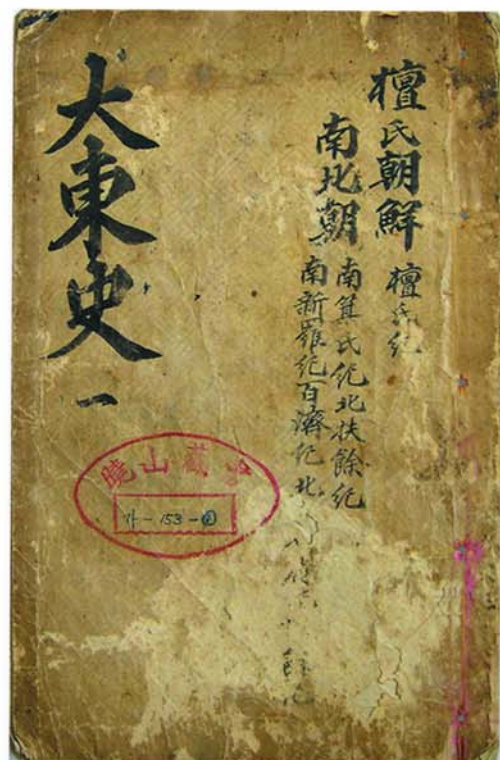 檀氏朝鮮 檀氏紀
南北朝 南箕氏紀北扶餘紀
南新羅紀百濟紀北
大東史 一
曉山藏書
가-153-